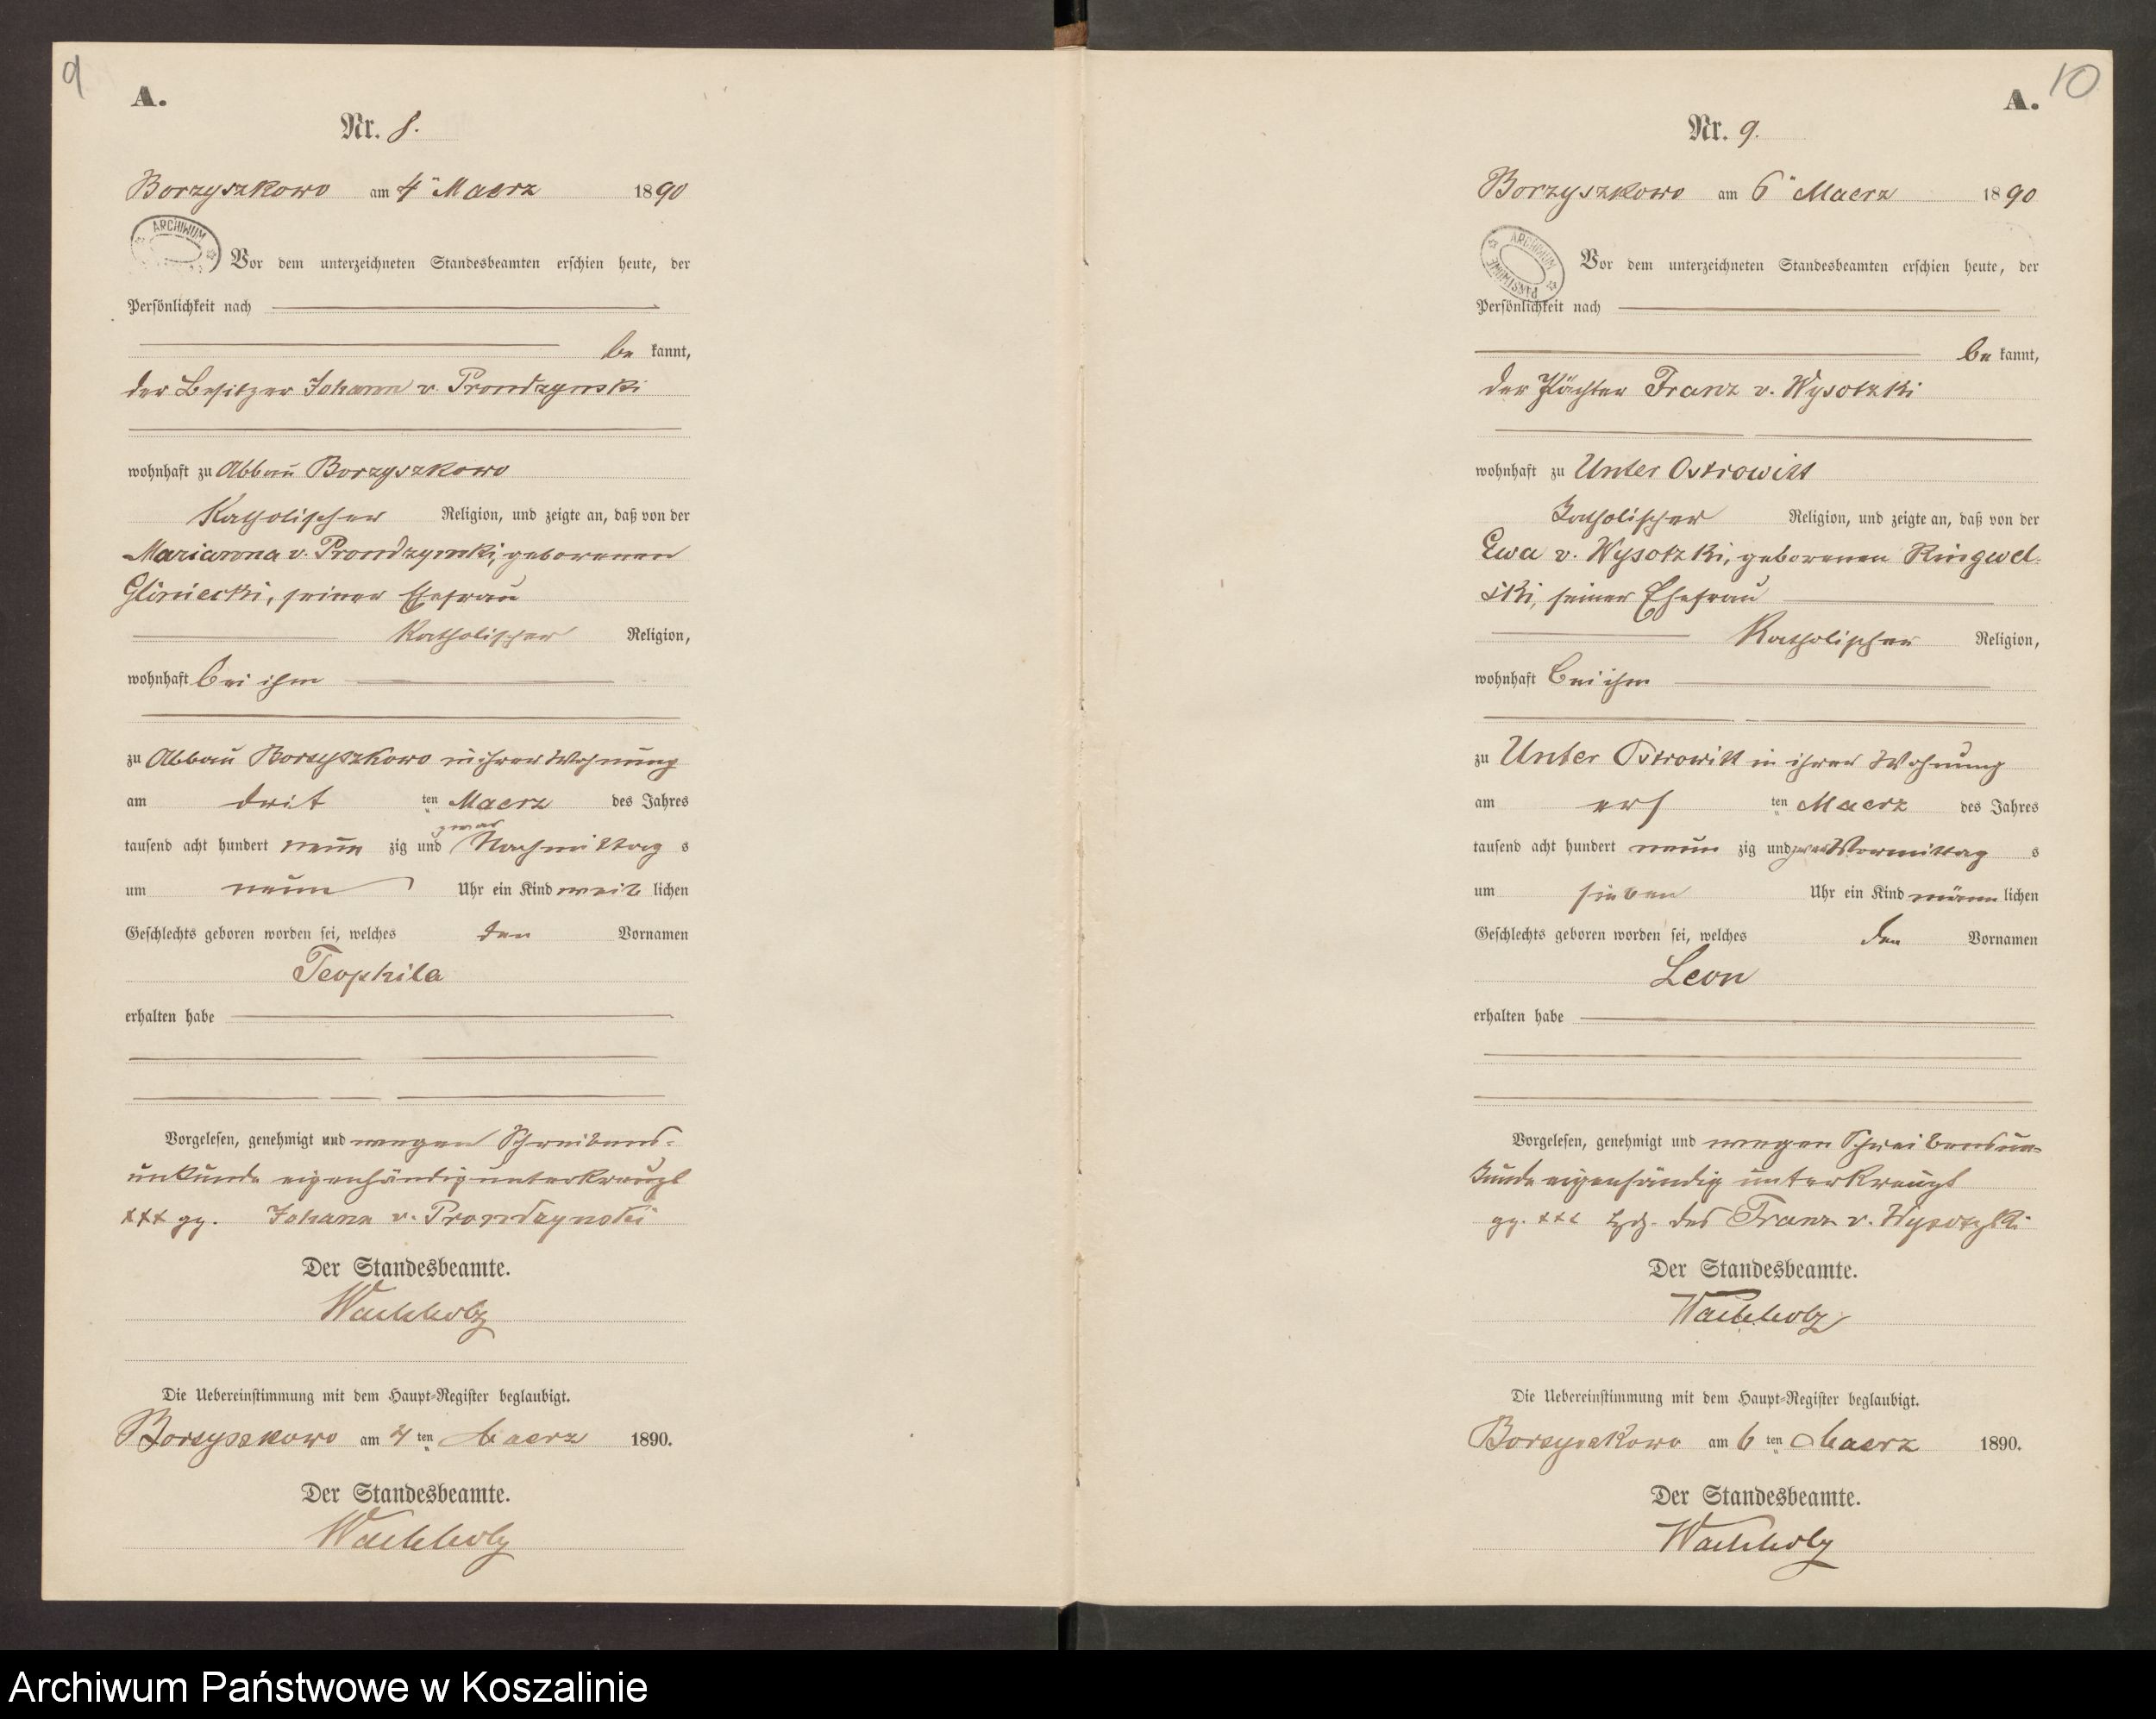 9
A.
Nr. 8.
Borzyszkowo am 4ten Maerz 1890
ARCHIWUM
Vor dem unterzeichneten Standesbeamten erschien heute, der
Persönlichkeit nach
be kannt,
der Besitzer Johann v. Prondzynski
wohnhaft zu Abbau Borzyszkowo
Katholischer Religion, und zeigte an, daß von der
Marianna v. Prondzynski, geborenen
Gliniecki, seiner Ehefrau
Katholischer Religion,
wohnhaft bei ihm
zu Abbau Borzyszkowo in ihrer Wohnung
am dritten Maerz des Jahres
tausend acht hundert neun zig und zwar Nachmittag s
um neun Uhr ein Kind weib lichen
Geschlechts geboren worden sei, welches den Vornamen
Teophila
erhalten habe
Vorgelesen, genehmigt und wegen Schreibens-
unkunde eigenhändig unterkreuzt
xxx gz. Johann v. Prondzynski
Der Standesbeamte.
Wachholz
Die Uebereinstimmung mit dem Haupt-Register beglaubigt.
Borzyszkowo am 4 ten Maerz 1890.
Der Standesbeamte.
Wachholz
10
A.
Nr. 9.
Borzyszkowo am 6ten Maerz 1890
ARCHIWUM PAŃSTWOWE
Vor dem unterzeichneten Standesbeamten erschien heute, der
Persönlichkeit nach
be kannt,
der Pächter Franz v. Wysotzki
wohnhaft zu Unter Ostrowitt
Katholischer Religion, und zeigte an, daß von der
Ewa v. Wysotzki, geborenen Ringwel-
ski, seiner Ehefrau
Katholischer Religion,
wohnhaft bei ihm
zu Unter Ostrowitt in ihrer Wohnung
am ers ten Maerz des Jahres
tausend acht hundert neun zig und zwar Vormittag s
um sieben Uhr ein Kind männ lichen
Geschlechts geboren worden sei, welches den Vornamen
Leon
erhalten habe
Vorgelesen, genehmigt und wegen Schreibensun-
kunde eigenhändig unterkreuzt
gz. xxx Hdz. des Franz v. Wysotzki
Der Standesbeamte.
Wachholz
Die Uebereinstimmung mit dem Haupt-Register beglaubigt.
Borzyszkowo am 6 ten Maerz 1890.
Der Standesbeamte.
Wachholz
Archiwum Państwowe w Koszalinie